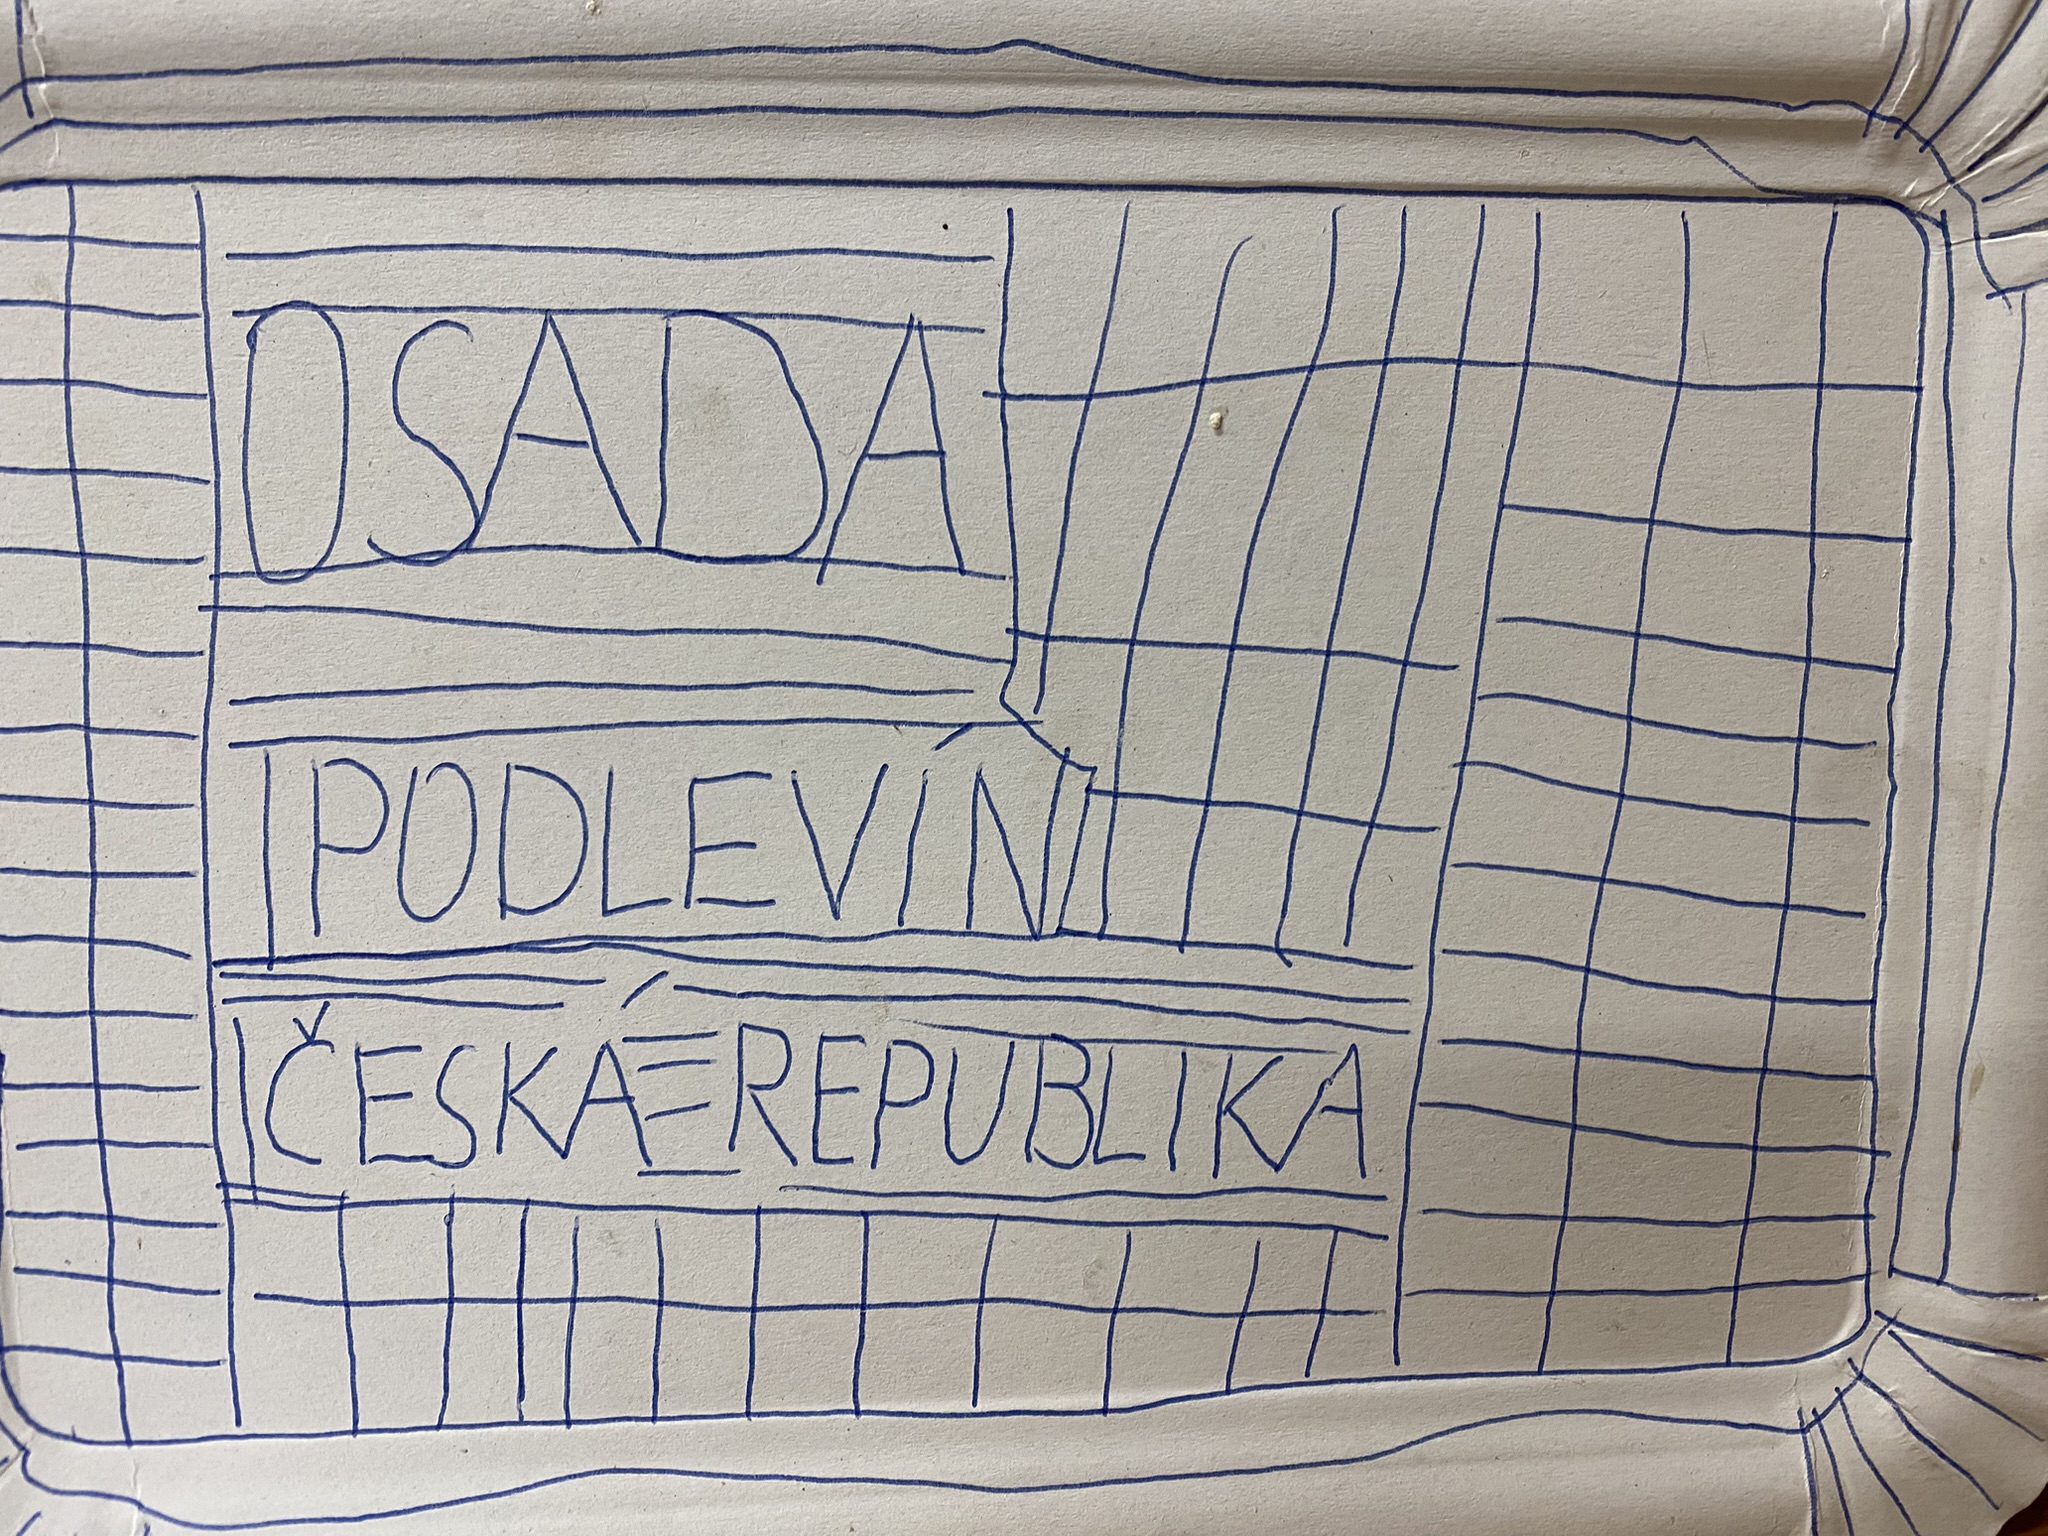 OSADA
PODLEVÍN
ČESKÁ REPUBLIKA